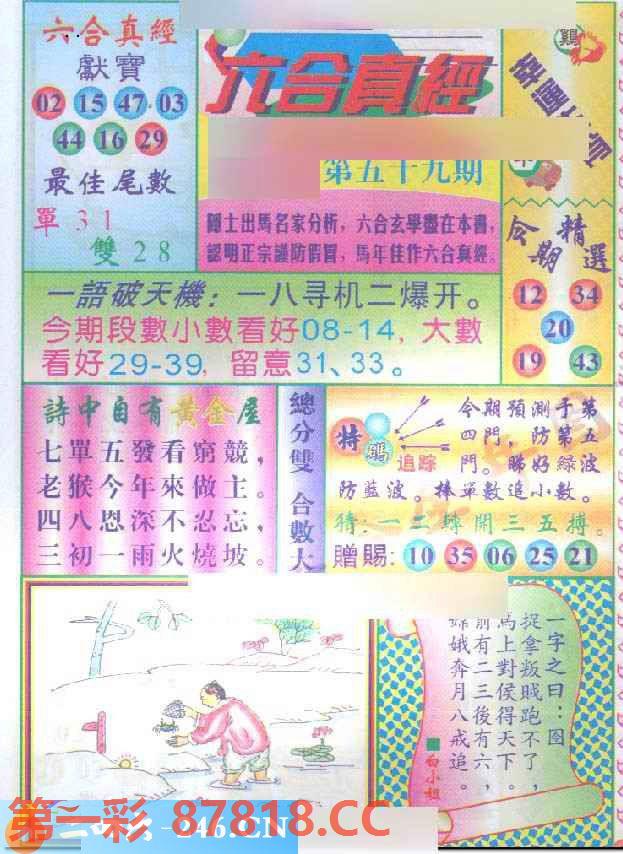 六合真經
獻寶
02 15 47 03
44 16 29
最佳尾數
單 31
雙 28
六合真經
第五十九期
隱士出馬名家分析，六合玄學盡在本書，
認明正宗謹防假冒，馬年佳作六合真經。
鷄
今期精選
12 34
20
19 43
一語破天機：一八寻机二爆开。
今期段數小數看好08-14，大數
看好29-39，留意31、33。
詩中自有黃金屋
七單五發看窮競，
老猴今年來做主。
四八恩深不忍忘，
三初一雨火燒坡。
總分雙 合數大
特碼追踪
今期預測于第
四門，防第五
門。睇好綠波
防藍波。捧單數追小數。
猜：一二球開三五搏。
贈賜：10 35 06 25 21
一字之曰：图
捉拿叛賊跑不了，
馬上對侯得天下。
前有二三後有六，
嫦娥奔月八戒追。
白小姐
第一彩 87818.CC
246.CN